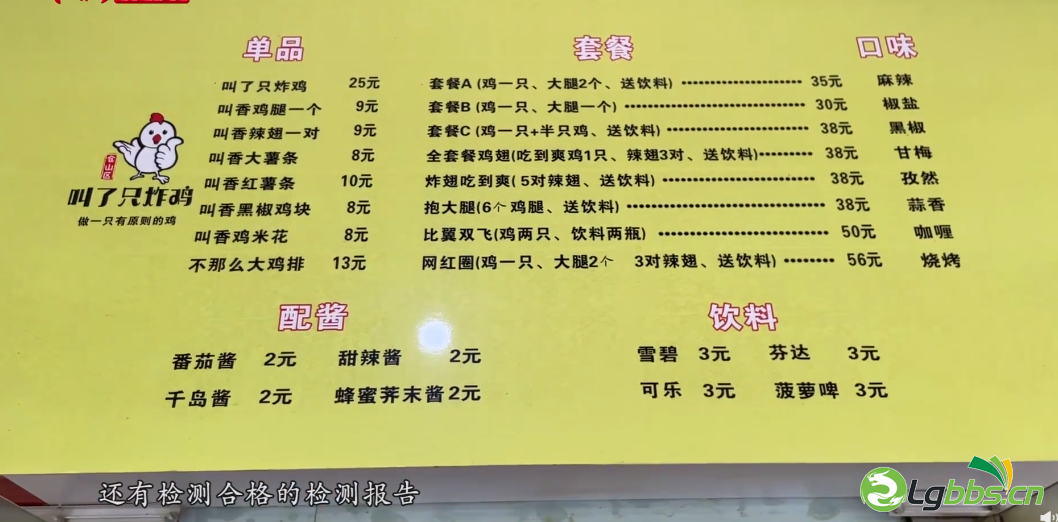 单品 套餐 口味
叫了只炸鸡 25元 套餐A (鸡一只、大腿2个、送饮料) 35元 麻辣
叫香鸡腿一个 9元 套餐B (鸡一只、大腿一个) 30元 椒盐
叫香辣翅一对 9元 套餐C (鸡一只+半只鸡、送饮料) 38元 黑椒
叫香大薯条 8元 全套餐鸡翅(吃到爽鸡1只、辣翅3对、送饮料) 38元 甘梅
叫香红薯条 10元 炸翅吃到爽(5对辣翅、送饮料) 38元 孜然
叫香黑椒鸡块 8元 抱大腿(6个鸡腿、送饮料) 38元 蒜香
叫香鸡米花 8元 比翼双飞(鸡两只、饮料两瓶) 50元 咖喱
不那么大鸡排 13元 网红圈(鸡一只、大腿2个 3对辣翅、送饮料) 56元 烧烤
叫了只炸鸡
做一只有原则的鸡
配酱 饮料
番茄酱 2元 甜辣酱 2元 雪碧 3元 芬达 3元
千岛酱 2元 蜂蜜荠末酱 2元 可乐 3元 菠萝啤 3元
还有检测合格的检测报告
Lgbbs.cn